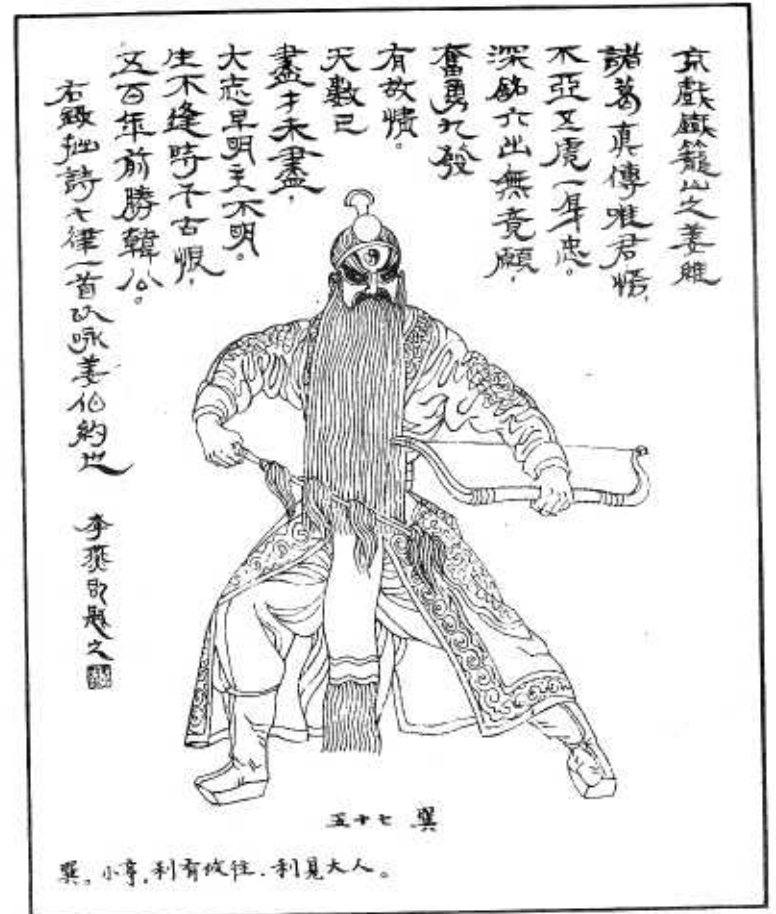 京戲鐵籠山之姜維
諸葛真傳唯君悟,
不亞五虎一身忠。
深銘六出無竟願,
奮勇九發
有故情。
天數已
盡才未盡,
大志早明主不明。
生不逢時千古恨,
五百年前勝韓公。
右錄拙詩七律一首以咏姜伯約也
李燕即題之
五十七 巽
巽。小亨,利有攸往.利見大人。